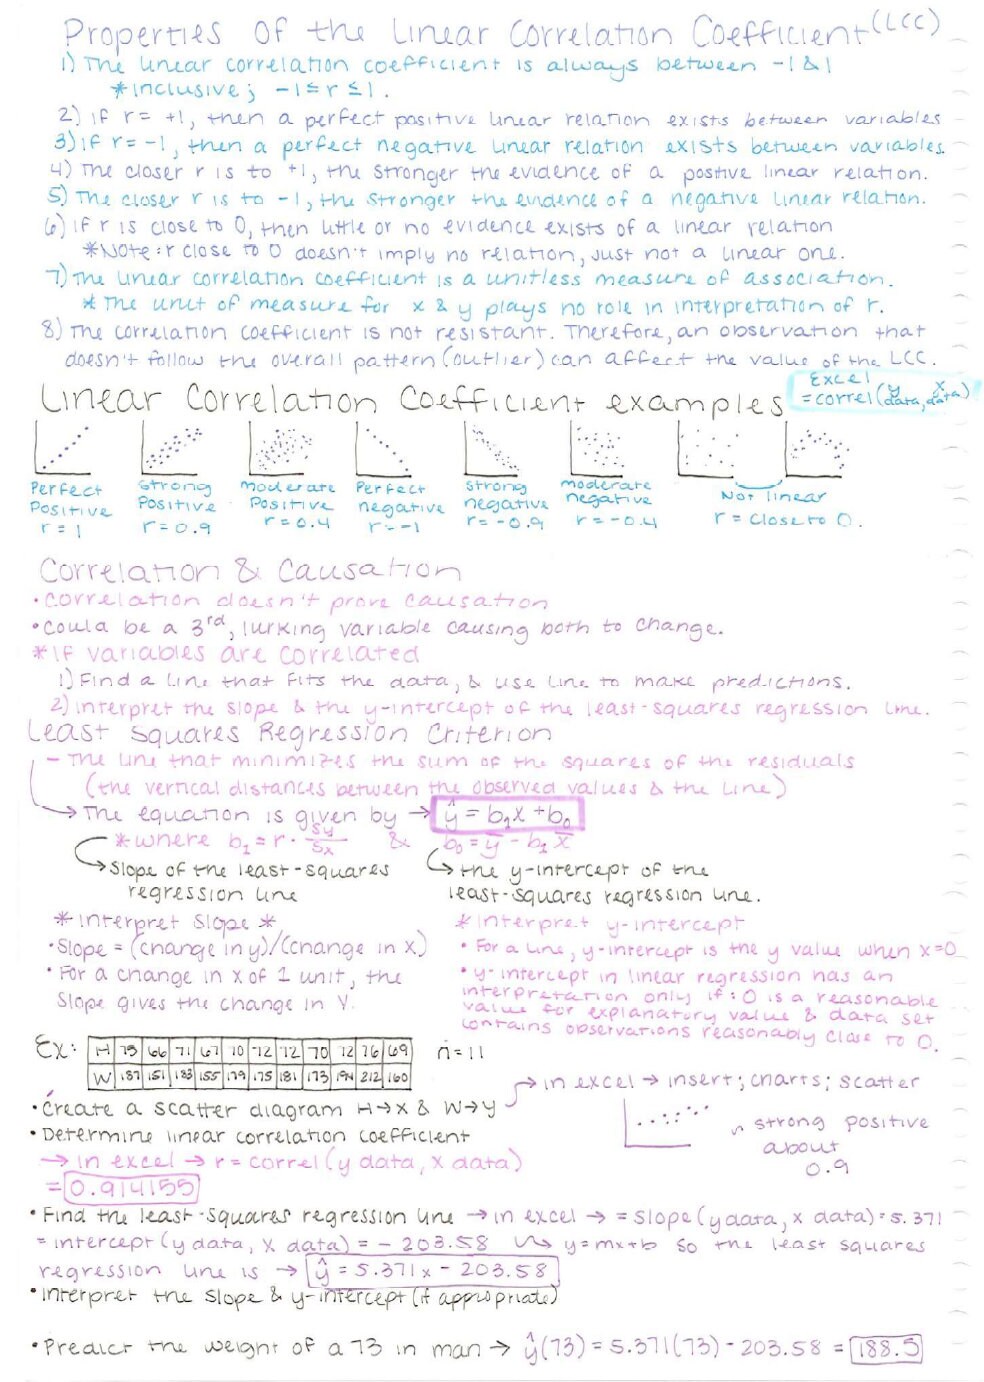 Properties of the Linear Correlation Coefficient (LCC)
1) The linear correlation coefficient is always between -1 & 1
*inclusive; -1 ≤ r ≤ 1.
2) if r = +1, then a perfect positive linear relation exists between variables
3) if r = -1, then a perfect negative linear relation exists between variables.
4) The closer r is to +1, the stronger the evidence of a positive linear relation.
5) The closer r is to -1, the stronger the evidence of a negative linear relation.
6) if r is close to 0, then little or no evidence exists of a linear relation
*Note: r close to 0 doesn't imply no relation, just not a linear one.
7) The linear correlation coefficient is a unitless measure of association.
* The unit of measure for x & y plays no role in interpretation of r.
8) The correlation coefficient is not resistant. Therefore, an observation that
doesn't follow the overall pattern (outlier) can affect the value of the LCC.
Linear Correlation Coefficient examples
Excel
=correl(y data, x data)
Perfect Positive r = 1
Strong Positive r = 0.9
moderate Positive r = 0.4
Perfect negative r = -1
Strong negative r = -0.9
moderate negative r = -0.4
Not linear r = close to 0.
Correlation & Causation
• Correlation doesn't prove causation
• Could be a 3rd, lurking variable causing both to change.
*If variables are correlated
1) Find a line that fits the data, & use line to make predictions.
2) interpret the slope & the y-intercept of the least-squares regression line.
Least Squares Regression Criterion
- The line that minimizes the sum of the squares of the residuals
(the vertical distances between the observed values & the line)
→ The equation is given by → ŷ = b₁x + b₀
*where b₁ = r · Sy/Sx & b₀ = y̅ - b₁x̅
→ Slope of the least-squares regression line
→ the y-intercept of the least-squares regression line.
* Interpret Slope *
• Slope = (change in y)/(change in x)
• For a change in x of 1 unit, the
slope gives the change in Y.
* Interpret y-intercept
• For a line, y-intercept is the y value when x=0
• y-intercept in linear regression has an
interpretation only if: 0 is a reasonable
value for explanatory value & data set
contains observations reasonably close to 0.
Ex: H 73 66 71 67 70 72 72 70 72 76 69 n = 11
W 187 151 183 155 179 175 181 173 194 212 160
• Create a scatter diagram H→x & W→y → in excel → insert; charts; scatter
• Determine linear correlation coefficient
→ in excel → r = correl(y data, x data)
= 0.914155
strong positive
about
0.9
• Find the least-squares regression line → in excel → = slope(y data, x data) = 5.371
= intercept(y data, x data) = - 203.58 y=mx+b so the least squares
regression line is → ŷ = 5.371x - 203.58
• Interpret the slope & y-intercept (if appropriate)
• Predict the weight of a 73 in man → ŷ(73) = 5.371(73) - 203.58 = 188.5